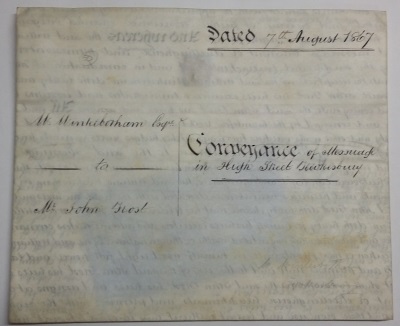 Dated 7th August 1867
W. Winterbotham Esqre
to
Mr John Frost
Conveyance of Messuage
in High Street Tewkesbury